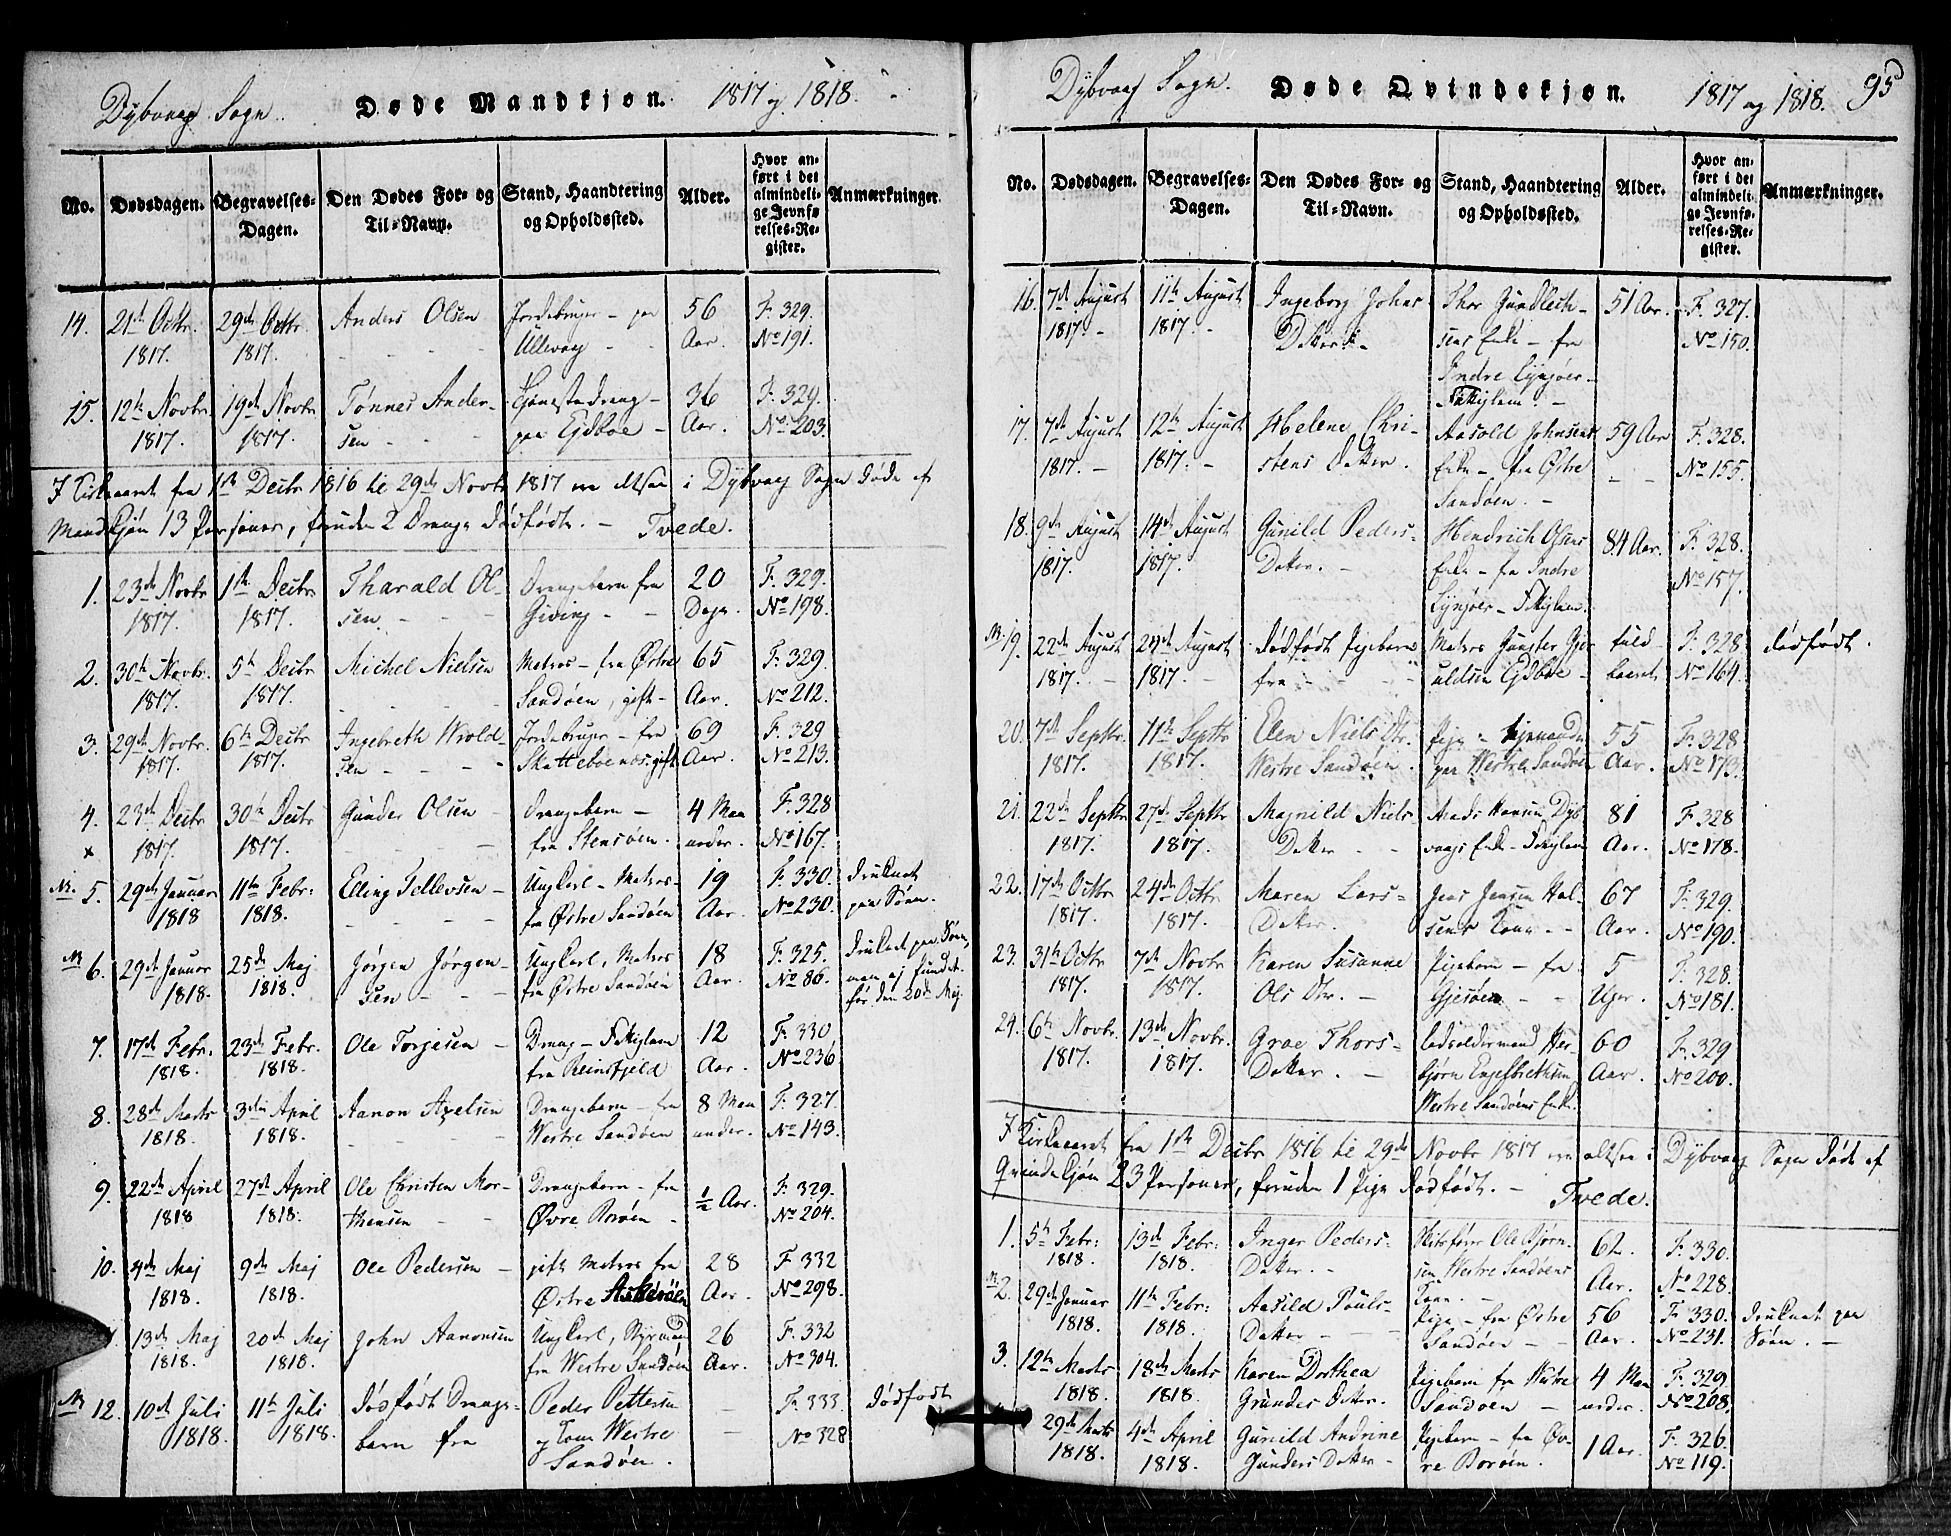 Dybvaag Sogn. Døde Mandkjøn. 1817 og 1818.
No. Dødsdagen. Begravelses-Dagen. Den Dødes For- og Til-Navn. Stand, Haandtering og Opholdssted. Alder. Hvor anført i det almindelige Jevnførelses-Register. Anmærkninger.
14. 21de Octbr. 29de Octbr. Anders Olsen Jordebruger - paa 56 F. 329.
1817. 1817. Ullevaag Aar. No 191.
15. 12te Novbr. 19de Novbr. Tønnes Ander- Tjenestedreng - 36 F. 329.
1817. 1817. sen paa Ejdboe Aar. No 203.
I Kirkeaaret fra 1ste Decbr 1816 til 29de Novbr 1817 ere altsaa i Dybvaag Sogn døde af
Mandkjøn 13 Personer, foruden 2 Drenge dødfødte. - Tvede.
1. 23de Novbr 1ste Decbr Tharald Ol- Drengebarn fra 20 F. 329.
1817. 1817. sen Giving Dage. No 198.
2. 30te Novbr. 5te Decbr Michel Nielsen Matros - fra Østre 65 F. 329.
1817. 1817. Sandøen, gift - Aar. No 212.
3. 29de Novbr. 6te Decbr Ingebreth Wrold- Jordebruger - fra 69 F. 329
1817. 1817. sen Skatteboenæs. gift Aar. No 213.
4. 23de Decbr 30te Decbr Gunder Olsen Drengebarn - 4 Maa F. 328
x 1817. 1817. fra Stensøen. neder. No 167.
5. 29de Januar 11te Febr: Elling Tellevsen Ungkarl - Matros - 19 F. 330. druknet
1818 1818. fra Østre Sandøen Aar. No 230. paa Søen.
6. 29de Januar 25de Maj Jørgen Jørgen- Ungkarl, Matros 18 F. 325. druknet paa Søen,
1818. 1818. sen fra Østre Sandøen Aar. No 86. men ej fundet
før den 20de Maj.
7. 17de Febr: 23de Febr. Ole Torjesen Dreng - Fattiglem 12 F. 330
1818. 1818. fra Reinsfjeld Aar. No 236
8. 28de Marts 3die April Aanon Axelsen Drengebarn - fra 8 Maa F. 327.
1818. 1818. Westre Sandøen neder. No 143.
9. 22de April 27de April Ole Christen Mor- Drengebarn - fra ½ Aar. F. 329.
1818 1818. thensen Øvre Borøen No 204.
10. 4de Maj 9de Maj Ole Pedersen gift Matros fra 28 F 332
1818. 1818. Østre Aar. No 298.
13de Maj 20de Maj John Aanonsen Ungkarl, Styrmand 26 F. 332
1818. 1818. fra Westre Sandøen Aar. No 304.
12. 10de Juli 11te Juli dødfødt Drenge- Peder Pettersen - F. 333. dødfødt
1818. 1818. barn fra og Kone Westre - No 328
Sandøen.
Dybvaag Sogn. Døde Qvindekjøn. 1817 og 1818. 95
No. Dødsdagen. Begravelses-Dagen. Den Dødes For- og Til-Navn. Stand, Haandtering og Opholdssted. Alder. Hvor anført i det almindelige Jevnførelses-Register. Anmærkninger.
16. 7de August 11te August Ingeborg Johns Thor Gundleth- 51 Aar. F. 327.
1817. 1817. Datter. sens Enke - fra No 150.
Indre Lyngøer -
Fattiglem. -
17. 7de August 12te August Helene Chri- Aasold Johnsens 59 Aar F. 328.
1817. 1817. stens Datter. Enke - fra Østre No 155.
Sandøen. -
18. 9de August 14de August Gunild Peders- Hendrich Olsens 84 Aar. F. 328.
1817. 1817. Datter. Enke - fra Indre No 157.
Lyngøer - Fattiglem.
19. 22de August 24de August dødfødt Pigebarn Matros Gunster Gjer fuld F. 328 dødfødt.
1817. 1817. fra uldsen Ejdboe - baaret No 164.
20. 7de Septbr. 11te Septbr Elen Niels Dtr. Pige - 55 F. 328
1817. 1817. Westre Sandøen. paa Westre Sandøen Aar. No 173.
21. 22de Septbr 27de Septbr Magnild Niels Mads Hansen Dyb 81 F. 328
1817. 1817. Datter vaags Enke - Fattiglem Aar. No 178.
22. 17de Octbr 24de Octbr Maren Lars- Jens Jensen Hol- 67 F. 329.
1817. 1817. Datter. sens Kone - Aar. No 190.
23. 31te Octbr 7de Novbr Karen Susanne Pigebarn - fra 5 F. 328.
1817. 1817. Ols Dtr. - Gjesøen Uger. No 181.
24. 6te Novbr. 13de Novbr. Groe Thors- Lodsoldermand Her- 60 F. 329
1817. 1817. Datter. - bjørn Engelbrethsen Aar. No 200.
Westre Sandøens Enke.
I Kirkeaaret fra 1ste Decbr 1816 til 29de Novbr 1817 ere altsaa i Dybvaag Sogn døde af
Qvindekjøn 23 Personer, foruden 1 Pige dødfødt. - Tvede.
1. 5te Febr: 13de Febr: Inger Peders- Ole Bjørn 62. F. 330.
1818. 1818. Datter. - sen Westre Sandøens Aar. No 228.
Kone. -
2. 29de Januar 11te Febr: Aasild Pouls- Pige - fra Østre 56 F. 330. druknet paa
1818. 1818. Datter Sandøen - Aar. No 231. Søen. -
3. 12te Marts 18de Marts Karen Dorthea Pigebarn fra Westre 4 Maa F. 329
1818. 1818. Gunders Datter. Sandøen - neder. No 208.
29de Marts 4de April Gunild Andrine Pigebarn - fra Øv- 1 Aar. F. 326.
1818. 1818. Gunders Datter - re Borøen. No 119.